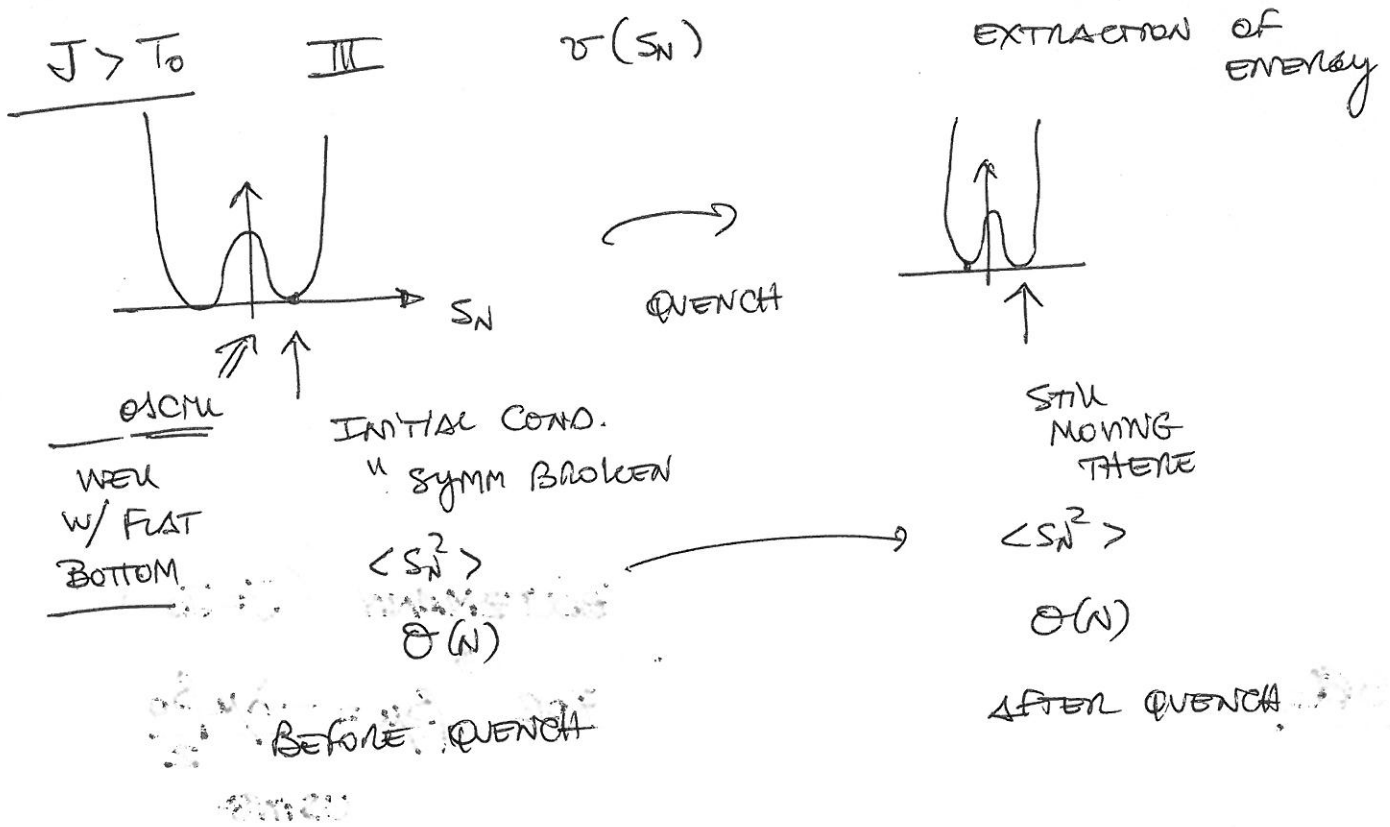 J > T₀ III v(S_N) EXTRACTION OF
ENERGY
S_N
QUENCH
OSCILL
WELL
W/ FLAT
BOTTOM
INITIAL COND.
" SYMM BROKEN
<S_N²>
O(N)
BEFORE QUENCH
STILL
MOVING
THERE
<S_N²>
O(N)
AFTER QUENCH